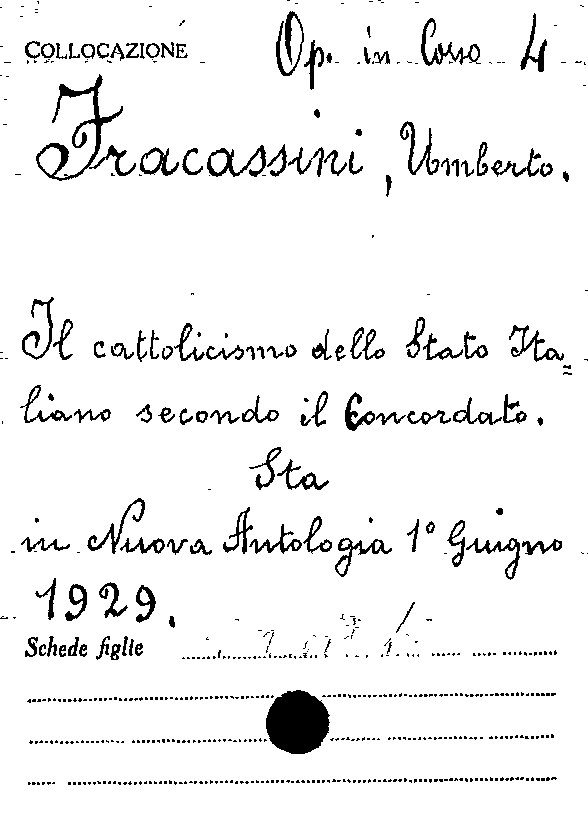 COLLOCAZIONE Op. in Corso 4
Fracassini, Umberto.
Il cattolicismo dello Stato Ita=
liano secondo il Concordato.
Sta
in Nuova Antologia 1° Giugno
1929.
Schede figlie